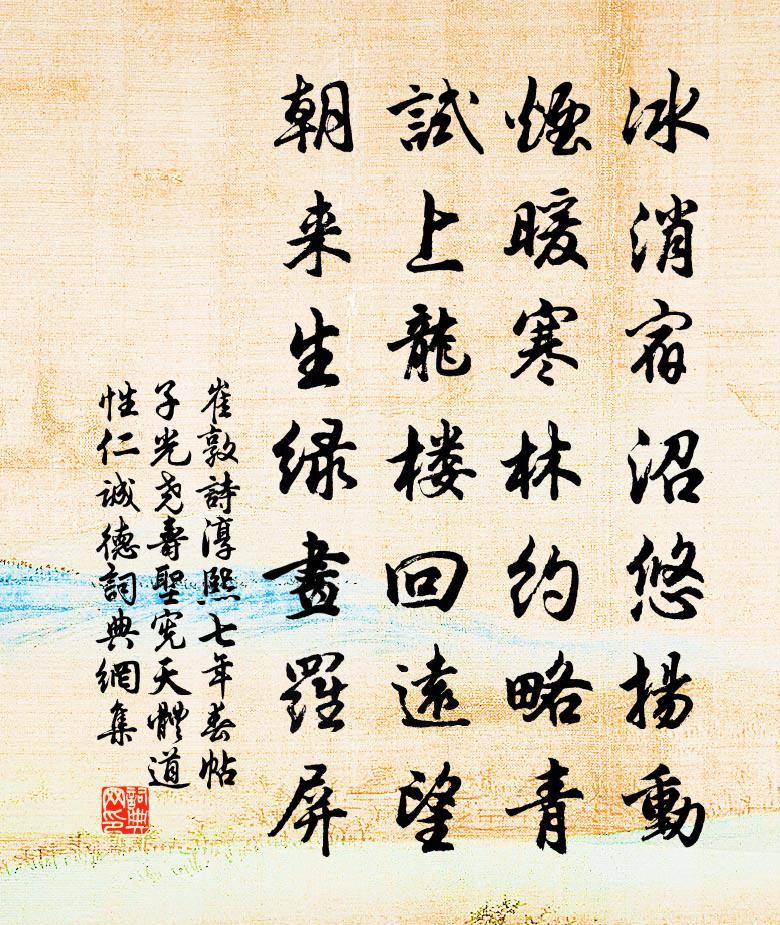 冰消宿沼悠揚動
煙暖寒林約略青
試上龍楼回遠望
朝来生绿畫羅屏
崔敦詩淳熙七年春帖
子光尧壽聖宪天體道
性仁誠德詞典網集
詞典
网印